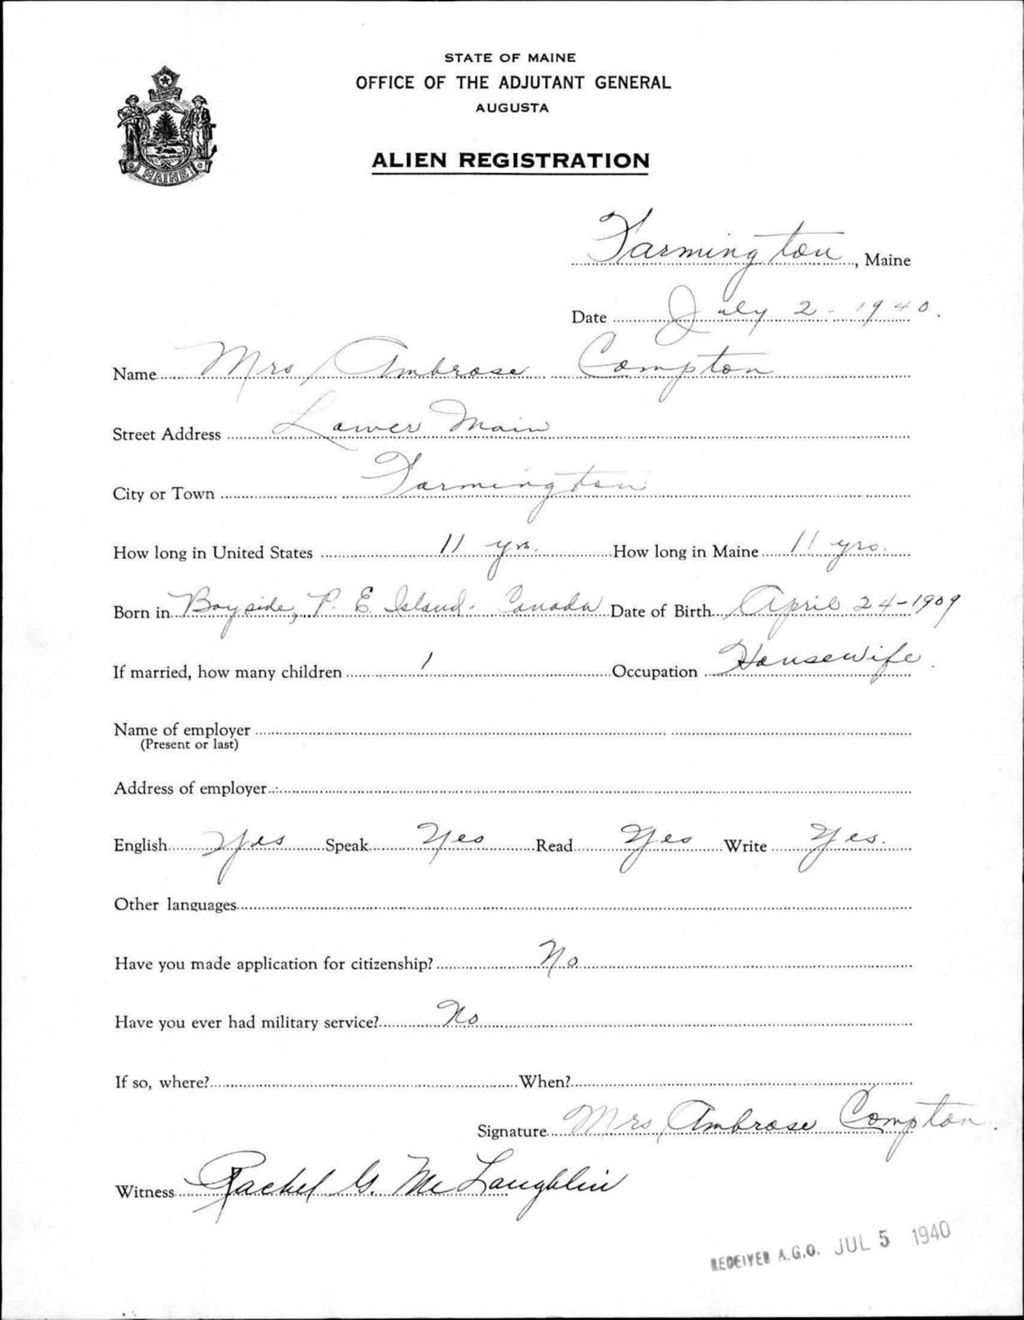 STATE OF MAINE
OFFICE OF THE ADJUTANT GENERAL
AUGUSTA
ALIEN REGISTRATION
MAINE
Farmington, Maine
Date July 2 - 1940.
Name Mrs Ambrose Compton
Street Address Lower Main
City or Town Farmington
How long in United States 11 yrs. How long in Maine 11 yrs.
Born in Bayside, P. E. Island. Canada Date of Birth April 24-1909
If married, how many children 1 Occupation Housewife.
Name of employer
(Present or last)
Address of employer
English Yes Speak Yes Read Yes Write Yes.
Other languages
Have you made application for citizenship? No
Have you ever had military service? No
If so, where? When?
Signature Mrs Ambrose Compton.
Witness Rachel G. McLaughlin
RECEIVED A.G.O. JUL 5 1940